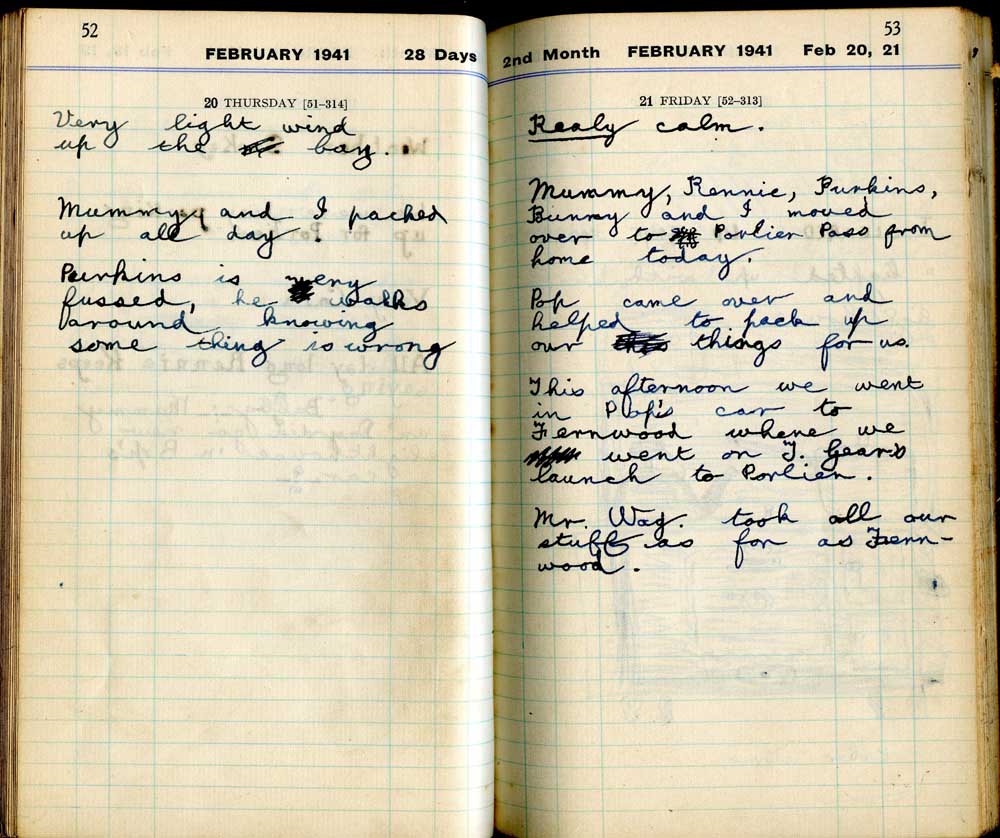 52
FEBRUARY 1941 28 Days
20 THURSDAY [51–314]
Very light wind
up the bay.
Mummy and I packed
up all day.
Purkins is very
fussed, he walks
around knowing
some thing is wrong
53
2nd Month FEBRUARY 1941 Feb 20, 21
21 FRIDAY [52–313]
Realy calm.
Mummy, Rennie, Purkins,
Bunny and I moved
over to Porlier Pass from
home today.
Pop came over and
helped to pack up
our things for us.
This afternoon we went
in Pop's car to
Fernwood where we
went on J. Gear's
launch to Porlier.
Mr. Wag. took all our
stuff as for as Fern-
wood.